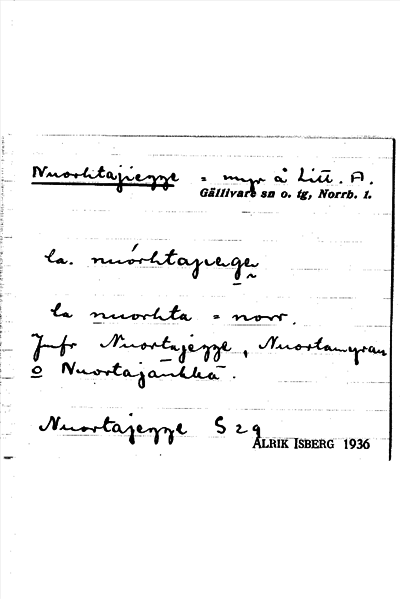 Nuorhtajiegge = myr å Litt. A.
Gällivare sn o. tg, Norrb. l.
la. nuórhtapiegge
la nuorhta = norr.
Jmfr Nuortajegge, Nuortamyran
o Nuortajänkkä.
Nuortajegge S 29
ALRIK ISBERG 1936